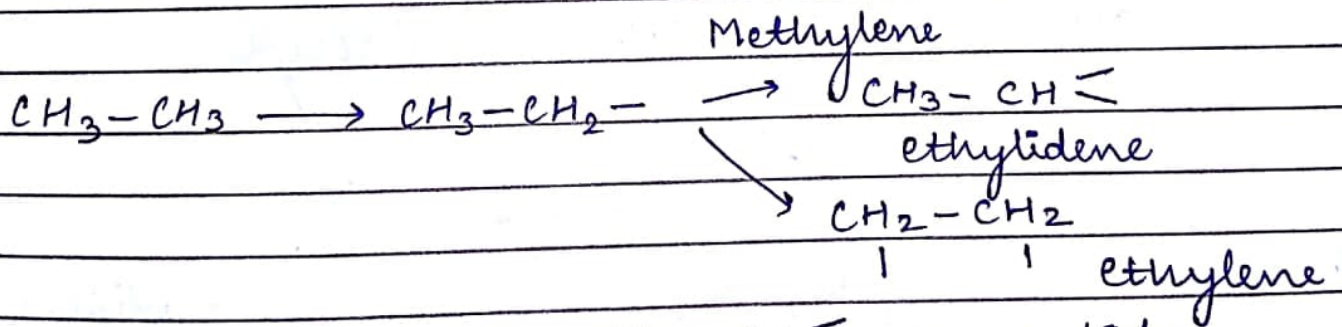 Methylene
CH3-CH3 → CH3-CH2- → CH3-CH<
ethylidene
CH2-CH2
ethylene